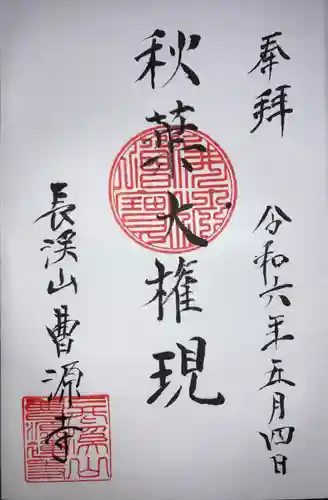 奉拝
令和六年五月四日
秋葉大権現
長溪山曹源寺